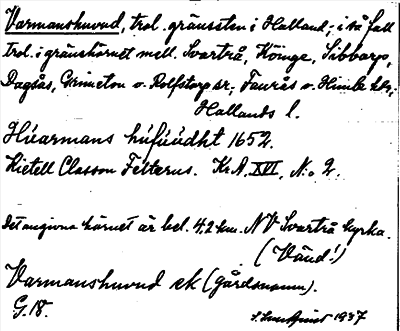 Varmanshuvud, trol. gränssten i Halland; i så fall
trol. i gränshörnet mell. Svartrå, Köinge, Sibbarp,
Dagsås, Grimeton o. Rolfstorp sr; Faurås o. Himle hd;
Hallands l.
Húarmans húfúúdht 1652.
Kietell Classon Felterus. Kr.A. XVI, N:o 2.
Det angivna hörnet är bel. 4,2 km. NV Svartrå kyrka.
(Vänd!)
Varmanshuvud ek (gårdsnamn).
G. 18.
1937